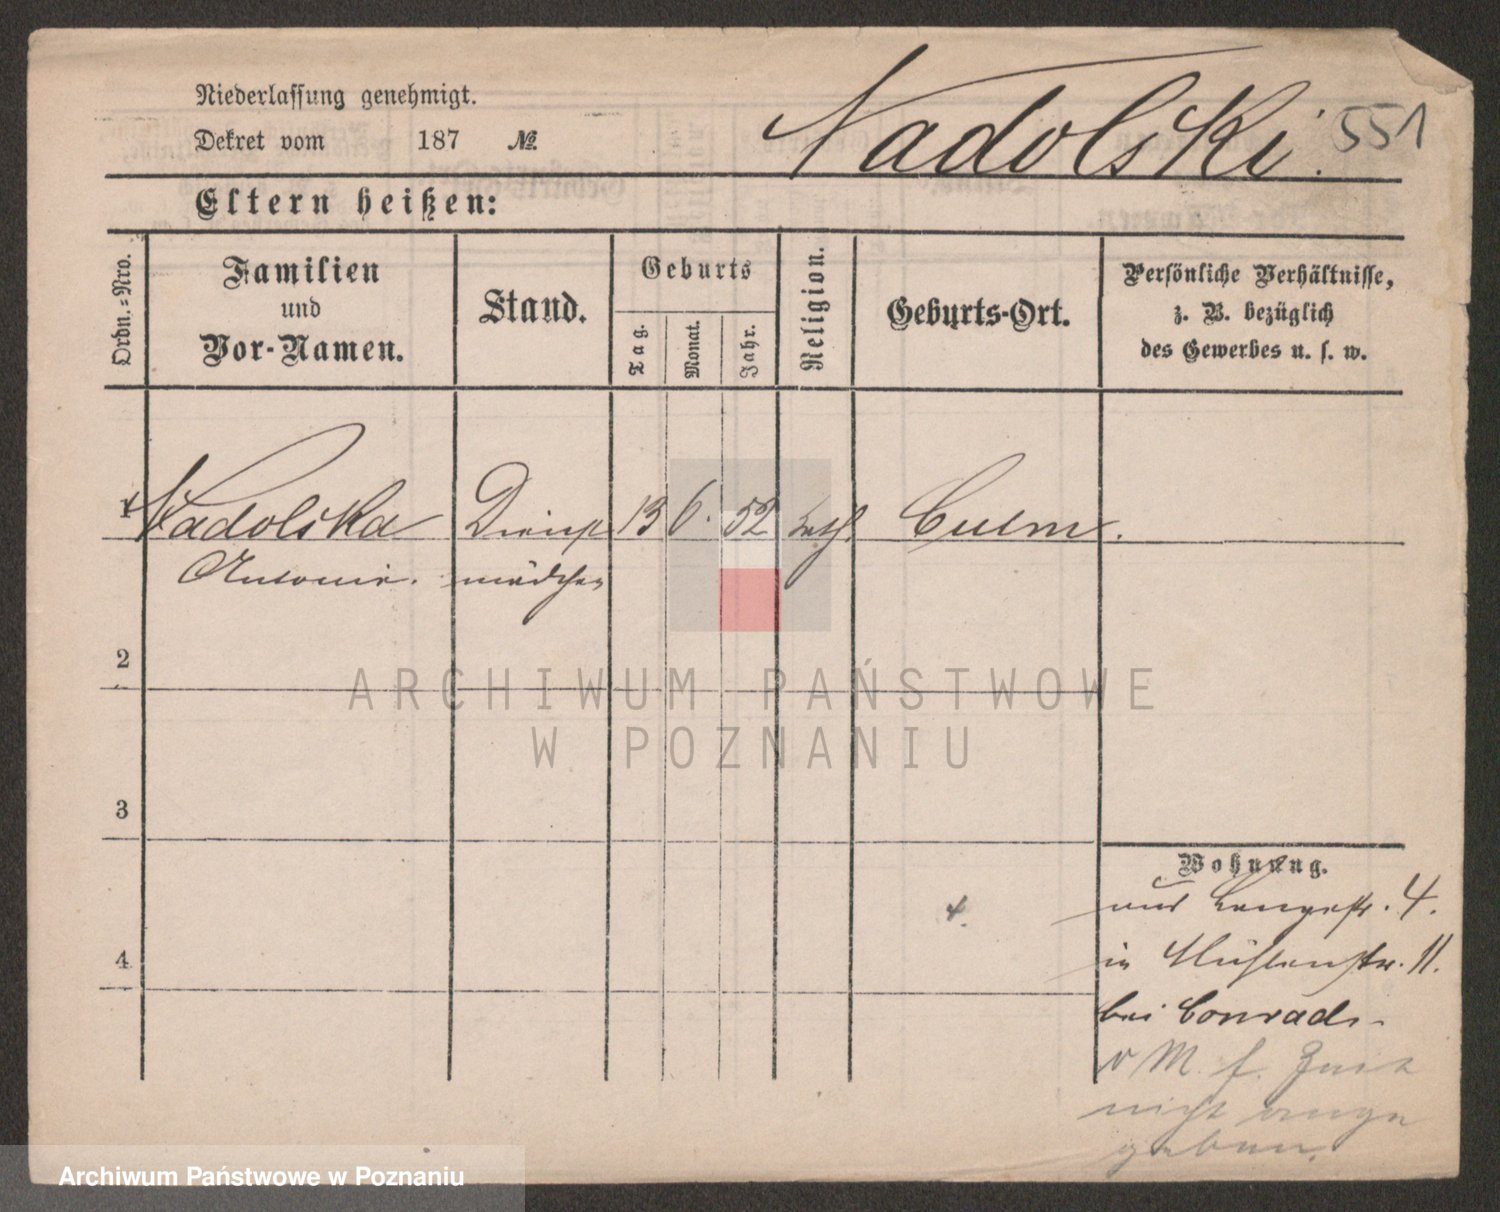 Niederlassung genehmigt.
Dekret vom 187 №
Nadolski. 551
Eltern heißen:
Ordn.=Nro.
Familien
und
Vor-Namen.
Stand.
Geburts
Tag.
Monat.
Jahr.
Religion.
Geburts-Ort.
Persönliche Verhältnisse,
z. B. bezüglich
des Gewerbes u. s. w.
1 Nadolska Dienst 13 6. 52 kath Culm.
Antonie. mädchen
2
ARCHIWUM PAŃSTWOWE
W POZNANIU
3
Wohnung.
aus Langestr. 4.
4
in Mühlenstr. 11.
bei Conrad.
v M. f. Zeit
nicht ange
geben.
Archiwum Państwowe w Poznaniu